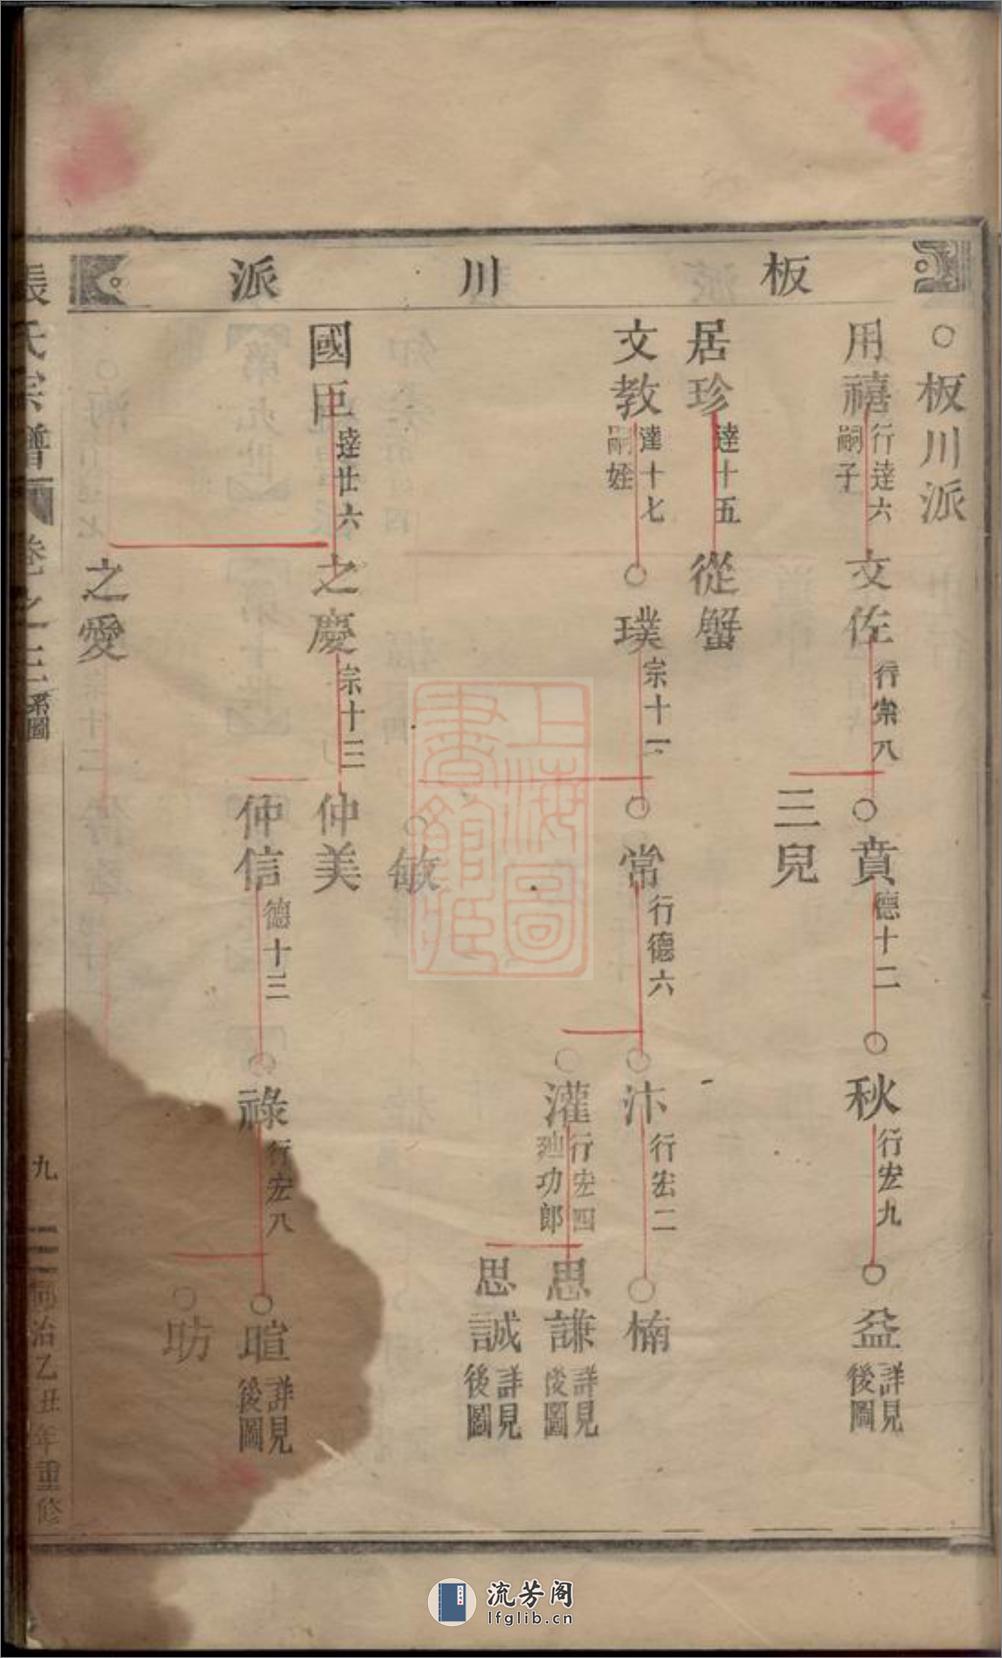 板川派
○板川派
用禧
行達六
嗣子
文佐
行宗八
○賁
德十二
○秋
行宏九
○益
詳見
後圖
三兒
居珍
達十五
從蟹
文教
達十七
嗣姪
○璞
宗十一
○常
行德六
○汴
行宏二
○楠
○灌
行宏四
迪功郎
思謙
詳見
後圖
思誠
詳見
後圖
○敏
國臣
達廿六
之慶
宗十三
仲美
仲信
德十三
○祿
行宏八
○暄
詳見
後圖
○昉
之愛
張氏宗譜
卷之三
系圖
九
同治乙丑年重修
上海圖書館藏
流芳阁
lfglib.cn